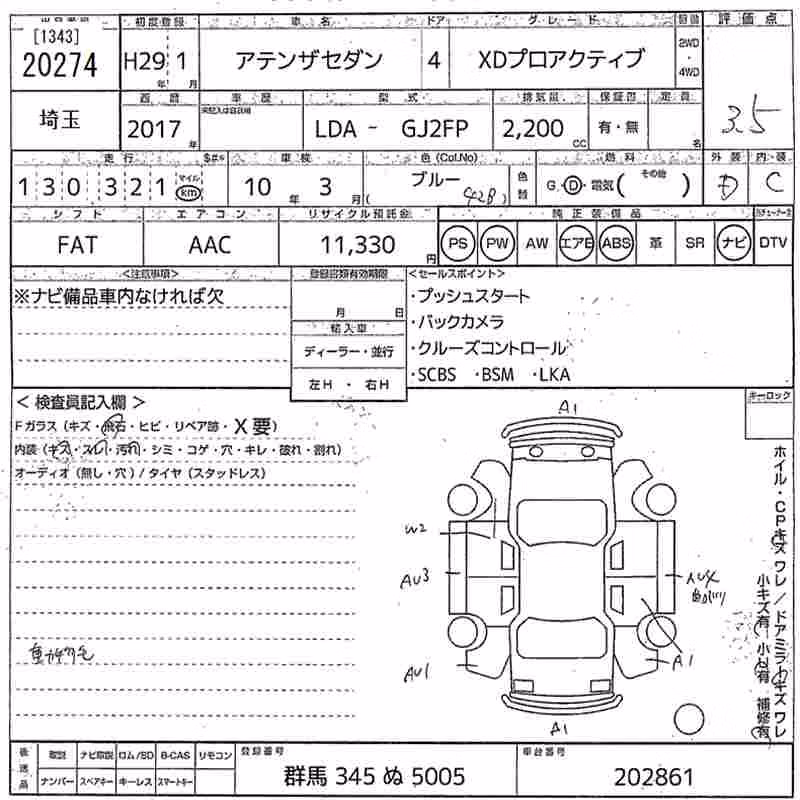 [1343]
20274
初度登録 車名 ドア グレード 評価点
H29年 1月 アテンザセダン 4 XDプロアクティブ 2WD・4WD
3.5
埼玉
西暦 車歴 型式 排気量 保証書 定員
未記入は自家用
2017年 LDA - GJ2FP 2,200cc 有・無 名
走行 車検 色(Col.No) 燃料 外装 内装
130321 マイル km 10年 3月 ブルー (42B) 色替 G・D・電気( その他 ) D C
シフト エアコン リサイクル預託金 純正装備品
FAT AAC 11,330円 PS PW AW エアB ABS 革 SR ナビ DTV
<注意事項> 登録書類有効期限 <セールスポイント>
※ナビ備品車内なければ欠
月 日
輸入車
ディーラー・並行
左H・右H
・プッシュスタート
・バックカメラ
・クルーズコントロール
・SCBS ・BSM ・LKA
キーロック
<検査員記入欄>
Fガラス(キズ・飛石・ヒビ・リペア跡・X要)
内装(キズ・スレ・汚れ・シミ・コゲ・穴・キレ・破れ・割れ)
オーディオ(無し・穴)/タイヤ(スタッドレス)
A1
W2
AU3
AU1
A1
A1
ホイル・CPキズ ワレ/ドアミラーキズ ワレ
小キズ有 小凹有 補修有
後送品 取説 ナビ取説 ロム/SD B-CAS リモコン
ナンバー スペアキー キーレス スマートキー
登録番号 車台番号
群馬 345 ぬ 5005 202861